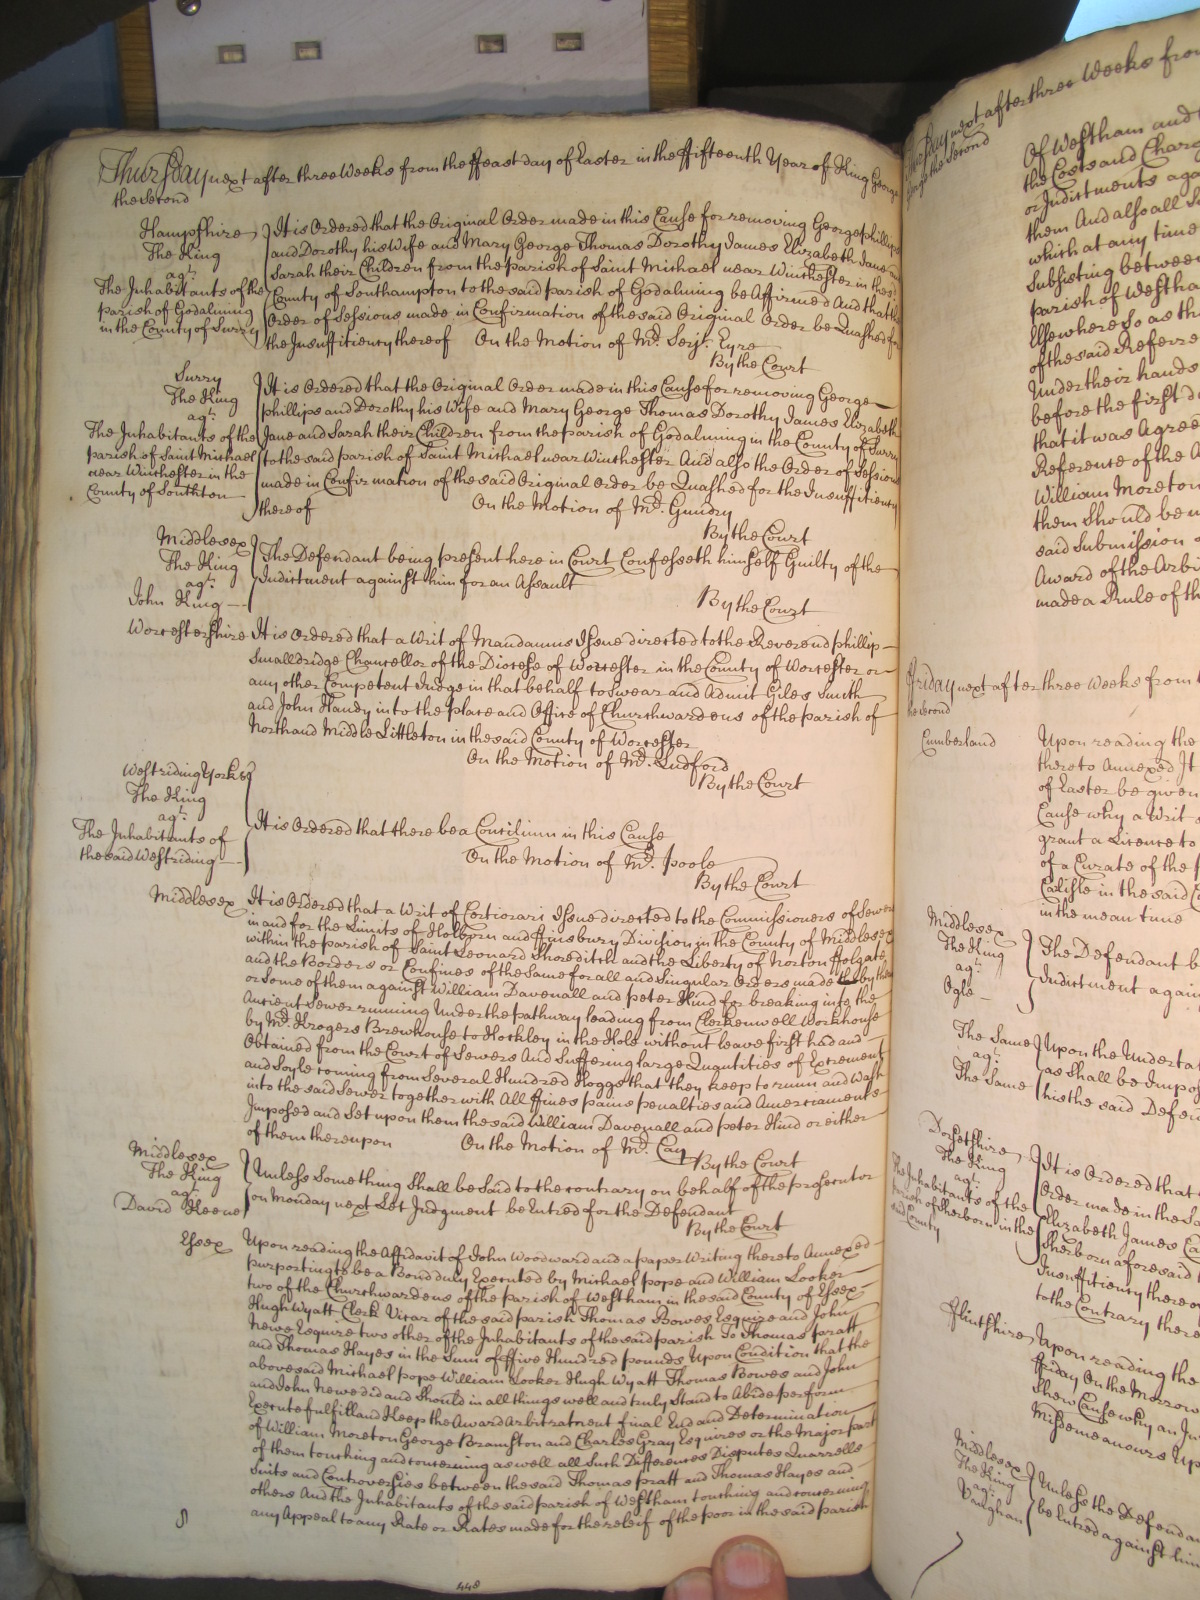 Thursday next after three Weeks from the ffeast day of Easter in the ffifteenth Year of King George
the Second
Hampshire
The King
agt.
The Inhabitants of the
parish of Godalming
in the County of Surry
It is Ordered that the Original Order made in this Cause for removing George phillips
and Dorothy his Wife and Mary George Thomas Dorothy James Elizabeth Jane and
Sarah their Children from the parish of Saint Michael near Winchester in the
County of Southampton to the said parish of Godalming be Affirmed And that the
Order of Sessions made in Confirmation of the said Original Order be Quashed for
the Insufficiency thereof On the Motion of Mr. Serjt. Eyre
By the Court
Surry
The King
agt.
The Inhabitants of the
parish of Saint Michael
near Winchester in the
County of Southton
It is Ordered that the Original Order made in this Cause for removing George
phillips and Dorothy his Wife and Mary George Thomas Dorothy James Elizabeth
Jane and Sarah their Children from the parish of Godalming in the County of Surry
to the said parish of Saint Michael near Winchester And also the Order of Sessions
made in Confirmation of the said Original Order be Quashed for the Insufficiency
thereof On the Motion of Mr. Gundry
By the Court
Middlesex
The King
agt.
John King
The Defendant being present here in Court Confesseth himself Guilty of the
Indictment against him for an Assault
By the Court
Worcestershire
It is Ordered that a Writ of Mandamus Issue directed to the Reverend phillip
Smalldridge Chancellor of the Diocese of Worcester in the County of Worcester or
any other Competent Judge in that behalf to Swear and Admit Giles Smith
and John Handy into the place and Office of Churchwardens of the parish of
North and Middle Littleton in the said County of Worcester
On the Motion of Mr. Ludford
By the Court
Westriding Yorks
The King
agt.
The Inhabitants of
the said Westriding
It is Ordered that there be a Concilium in this Cause
On the Motion of Mr. poole
By the Court
Middlesex
It is Ordered that a Writ of Certiorari Issue directed to the Commissioners of Sewers
in and for the Limits of Holborn and ffinsbury Division in the County of Middlesex
within the parish of Saint Leonard Shoreditch and the Liberty of Norton ffolgate
and the Borders or Confines of the Same for all and Singular Orders made by them
or Some of them against William Davenall and peter Hind for breaking into the
Ancient Sewer running Under the pathway leading from Clerkenwell Workhouse
by Mr. Krogers Brewhouse to Hockley in the Hole without leave first had and
Obtained from the Court of Sewers And Suffering large Quantities of Excrement
and Soyle coming from Several Hundred Hoggs that they keep to runn and Wash
into the said Sewer together with All ffines pains penalties and Amerciaments
Imposed and Set upon them the said William Davenall and peter Hind or either
of them thereupon On the Motion of Mr. Cay
By the Court
Middlesex
The King
agt.
David Keene
Unless Something Shall be Said to the contrary on behalf of the prosecutor
on Monday next Let Judgment be Entred for the Defendant
By the Court
Essex
Upon reading the Affidavit of John Woodward and a paper Writing thereto Annexed
purporting to be a Bond duly Executed by Michael pope and William Looker
two of the Churchwardens of the parish of Westham in the said County of Essex
Hugh Wyatt Clerk Vicar of the said parish Thomas Bowes Esquire and John
Newe Esquire two other of the Inhabitants of the said parish To Thomas pratt
and Thomas Hayes in the Sum of ffive Hundred pounds Upon Condition that the
abovesaid Michael pope William Looker Hugh Wyatt Thomas Bowes and John
and John Newe did and Should in all things well and truly Stand to Abide perform
Execute fulfill and Keep the Award Arbitratment final End and Determination
of William Moreton George Bramston and Charles Gray Esquires or the Major part
of them touching and concerning as well all Such Differences Disputes Quarrells
Suits and Controversies between the said Thomas pratt and Thomas Hayes and
others And the Inhabitants of the said parish of Westham touching and concerning
any Appeal to any Rate or Rates made for the releif of the poor in the said parish
448
Thursday next after three Weeks from
George the Second
Of Westham and
the Costs and Charg
or Indictments aga
them And also all S
which at any time
Subsisting between
parish of Westha
Elsewhere so as th
of the said Referre
Under their hands
before the first d
that it was Agree
Reference of the A
William Moreton
them Should be
said Submission
Award of the Arbi
made a Rule of th
ffriday next after three Weeks from
the Second
Cumberland
Upon reading the
thereto Annexed It
of Easter be given
Cause why a Writ
grant a Licence to
of a Curate of the
Carlisle in the said
in the mean time
Middlesex
The King
agt.
Ogle
The Defendant b
Indictment again
The Same
agt.
The Same
Upon the Underta
as Shall be Impos
his the said Defen
Dorsetshire
The King
agt.
The Inhabitants of the
parish of Sherborn in the
said County
It is Ordered that
Order made in the
Elizabeth James
Sherborn aforesaid
Insufficiency thereo
to the Contrary there
fflintshire
Upon reading the
ffriday On the Morrow
Shew Cause why an In
Misdemeanours Up
Middlesex
The King
agt.
Vaughan
Unless the Defendan
be Entred against him